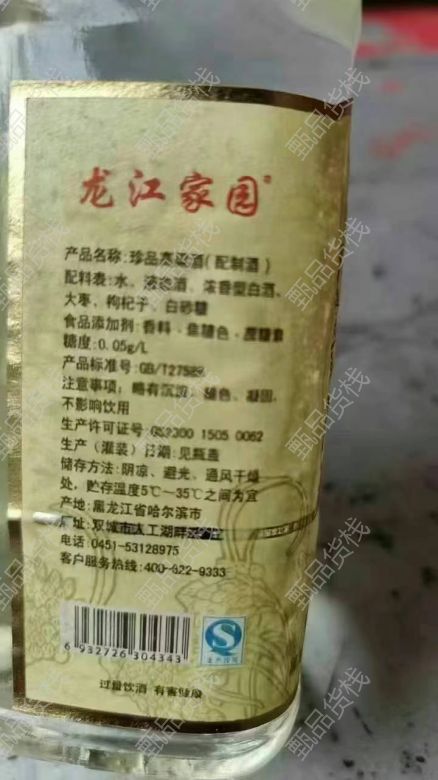 龙江家园®
产品名称:珍品枣蜜酒(配制酒)
配料表:水、液态酒、浓香型白酒、
大枣、枸杞子、白砂糖
食品添加剂:香料、焦糖色、蔗糖素
糖度:0.05g/L
产品标准号:GB/T27589
注意事项:略有沉淀、褪色、凝固,
不影响饮用
生产许可证号:QS2300 1505 0062
生产(灌装)日期:见瓶盖
储存方法:阴凉、避光、通风干燥
处,贮存温度5℃—35℃之间为宜
产地:黑龙江省哈尔滨市
址:双城市人工湖畔
电话:0451-53128975
客户服务热线:400-622-9333
6 932726 304343
QS
生产许可
过量饮酒 有害健康
甄品货栈